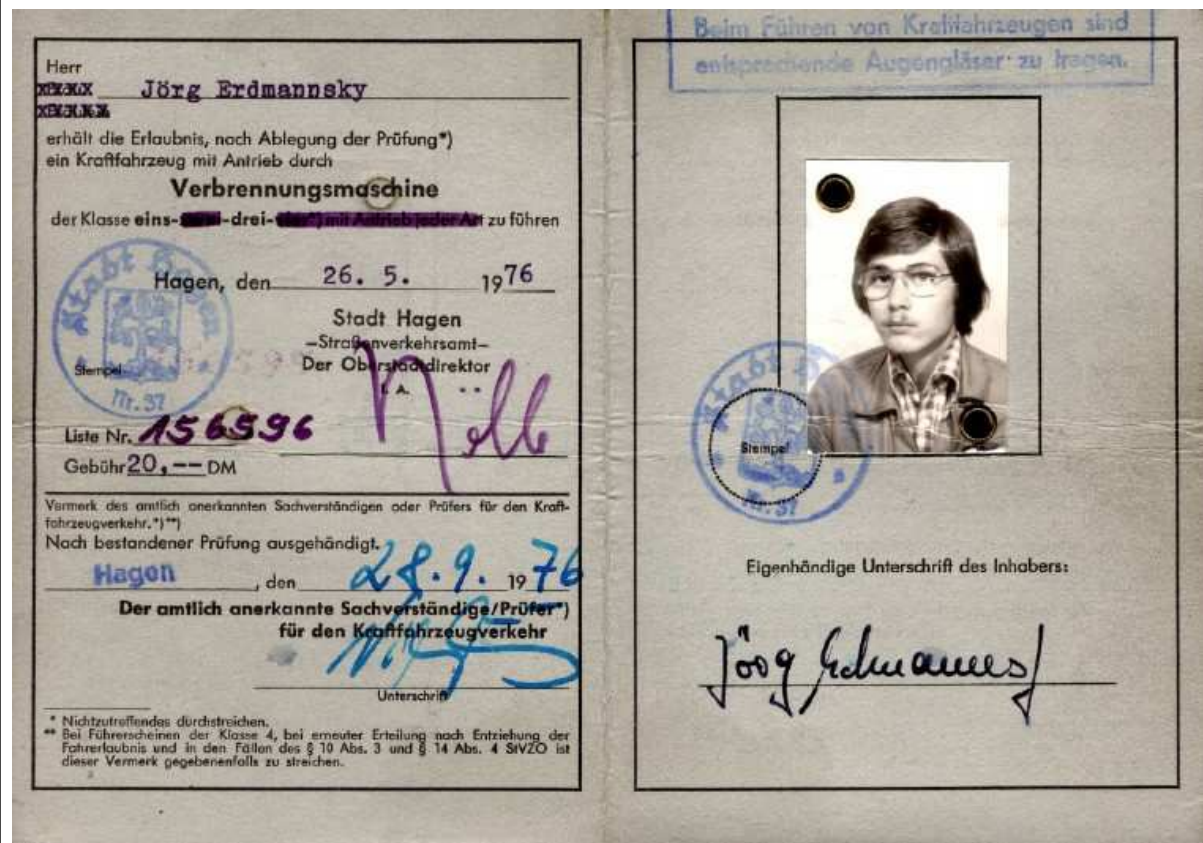 Herr
Jörg Erdmannsky
erhält die Erlaubnis, nach Ablegung der Prüfung*)
ein Kraftfahrzeug mit Antrieb durch
Verbrennungsmaschine
der Klasse eins-zwei-drei-vier*) mit Antrieb jeder Art zu führen
Hagen, den 26. 5. 1976
Stadt Hagen
–Straßenverkehrsamt–
Der Oberstadtdirektor
I. A.
Stadt Hagen
Stempel
Nr. 37
Liste Nr. 156596
Gebühr 20,-- DM
Vermerk des amtlich anerkannten Sachverständigen oder Prüfers für den Kraft-
fahrzeugverkehr.*)**)
Nach bestandener Prüfung ausgehändigt.
Hagen, den 28.9. 1976
Der amtlich anerkannte Sachverständige/Prüfer*)
für den Kraftfahrzeugverkehr
Unterschrift
* Nichtzutreffendes durchstreichen.
** Bei Führerscheinen der Klasse 4, bei erneuter Erteilung nach Entziehung der
Fahrerlaubnis und in den Fällen des § 10 Abs. 3 und § 14 Abs. 4 StVZO ist
dieser Vermerk gegebenenfalls zu streichen.
Beim Führen von Kraftfahrzeugen sind
entsprechende Augengläser zu tragen.
Stadt
Stempel
Nr. 37
Eigenhändige Unterschrift des Inhabers:
Jörg